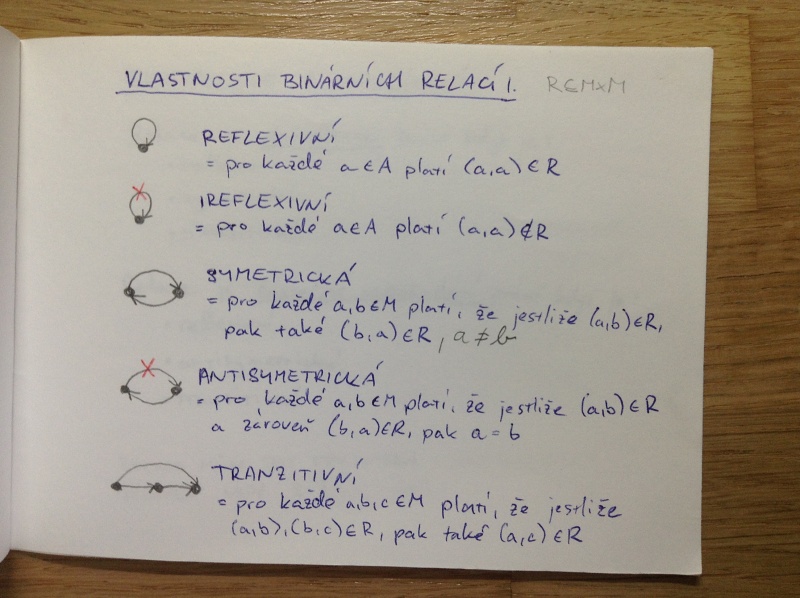 VLASTNOSTI BINÁRNÍCH RELACÍ I. R∈M×M
REFLEXIVNÍ
= pro každé a∈A platí (a,a)∈R
IREFLEXIVNÍ
= pro každé a∈A platí (a,a)∉R
SYMETRICKÁ
= pro každé a,b∈M platí, že jestliže (a,b)∈R,
pak také (b,a)∈R, a≠b
ANTISYMETRICKÁ
= pro každé a,b∈M platí, že jestliže (a,b)∈R
a zároveň (b,a)∈R, pak a=b
TRANZITIVNÍ
= pro každé a,b,c∈M platí, že jestliže
(a,b),(b,c)∈R, pak také (a,c)∈R